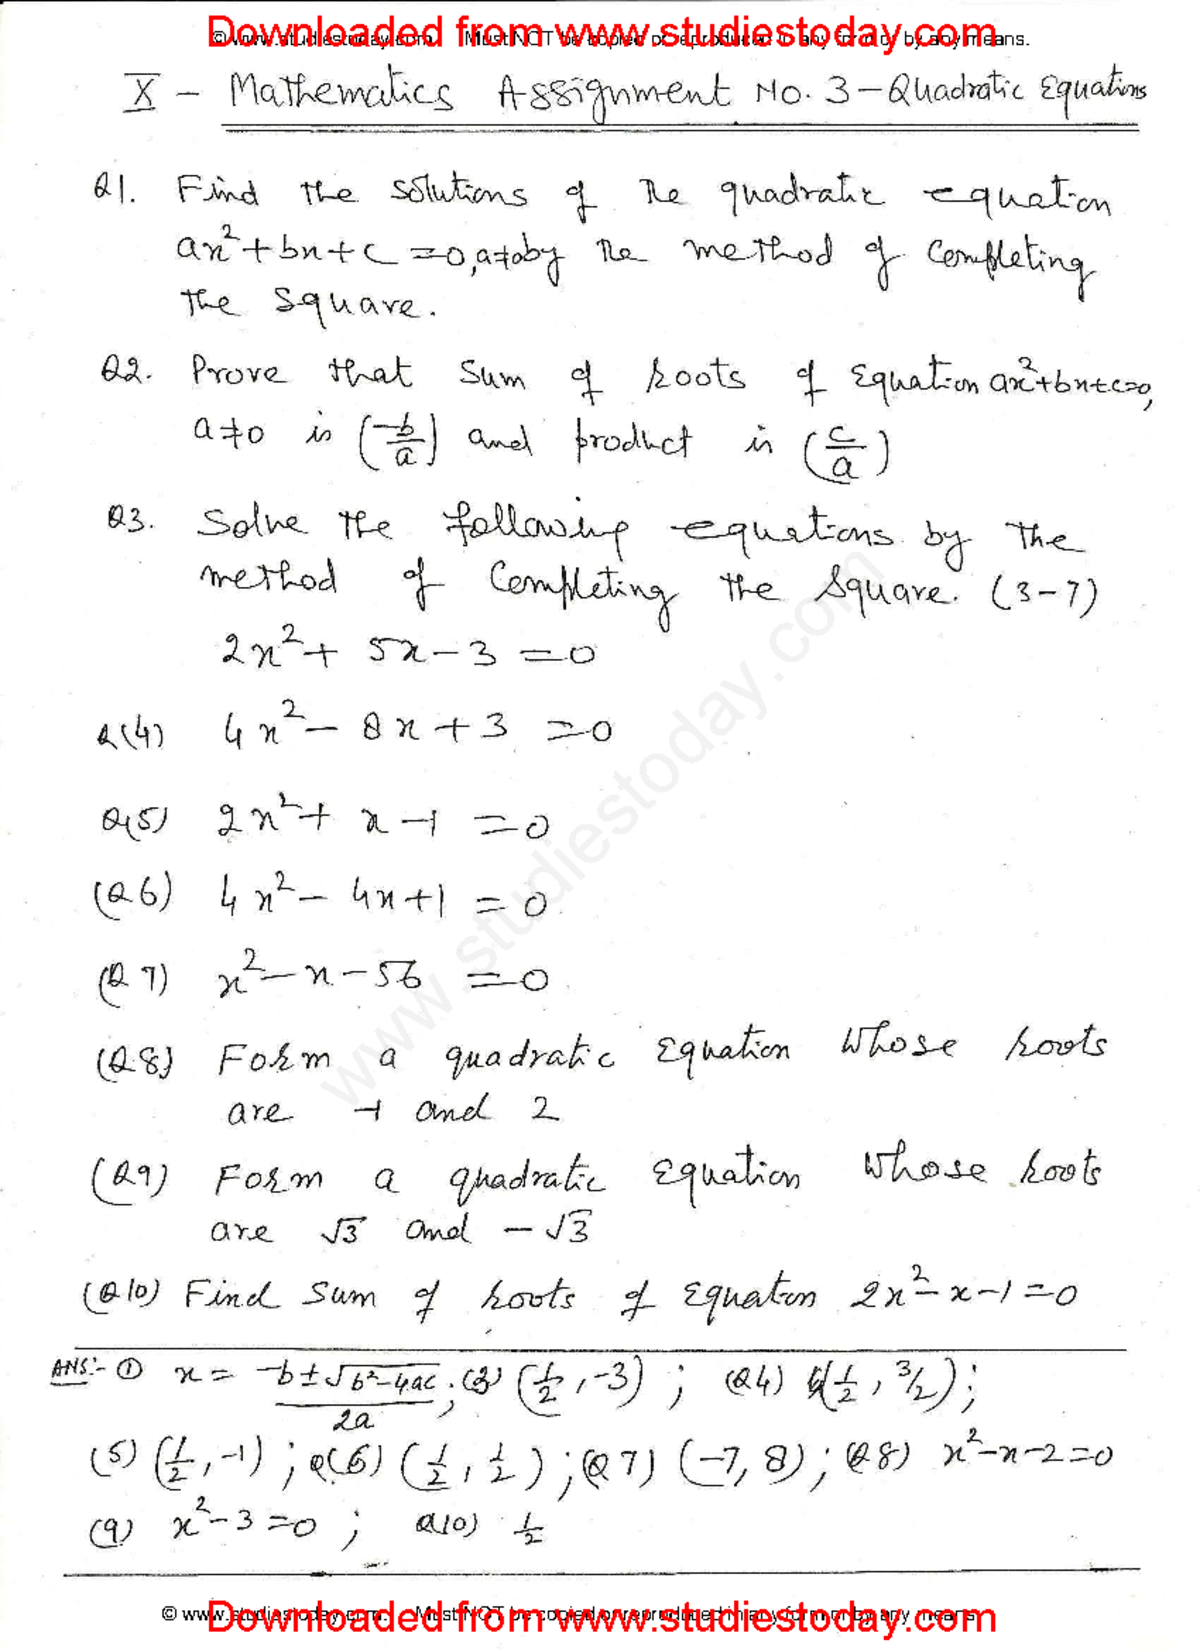 Downloaded from www.studiestoday.com
© www.studiestoday.com Must NOT be copied or reproduced in any form or by any means.
X - Mathematics Assignment No. 3 - Quadratic Equations
Q1. Find the solutions of the quadratic equation
ax² + bx + c = 0, a≠0 by the method of completing
the square.
Q2. Prove that sum of roots of equation ax²+bx+c=0,
a≠0 is (-b/a) and product is (c/a)
Q3. Solve the following equations by the
method of completing the square. (3-7)
2x² + 5x - 3 = 0
Q(4) 4x² - 8x + 3 = 0
Q(5) 2x² + x - 1 = 0
(Q6) 4x² - 4x + 1 = 0
(Q7) x² - x - 56 = 0
(Q8) Form a quadratic equation whose roots
are -1 and 2
(Q9) Form a quadratic equation whose roots
are √3 and -√3
(Q10) Find sum of roots of equation 2x² - x - 1 = 0
ANS:- ① x = -b ± √b²-4ac / 2a ; (3) (1/2, -3) ; (Q4) (1/2, 3/2) ;
(5) (1/2, -1) ; Q(6) (1/2, 1/2) ; (Q7) (-7, 8) ; (Q8) x² - x - 2 = 0
(9) x² - 3 = 0 ; Q10) 1/2
www.studiestoday.com
© www.studiestoday.com. Must NOT be copied or reproduced in any form or by any means.
Downloaded from www.studiestoday.com